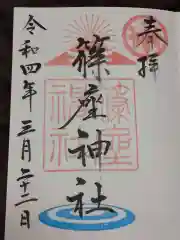 奉拝
篠座神社
令和四年三月二十二日